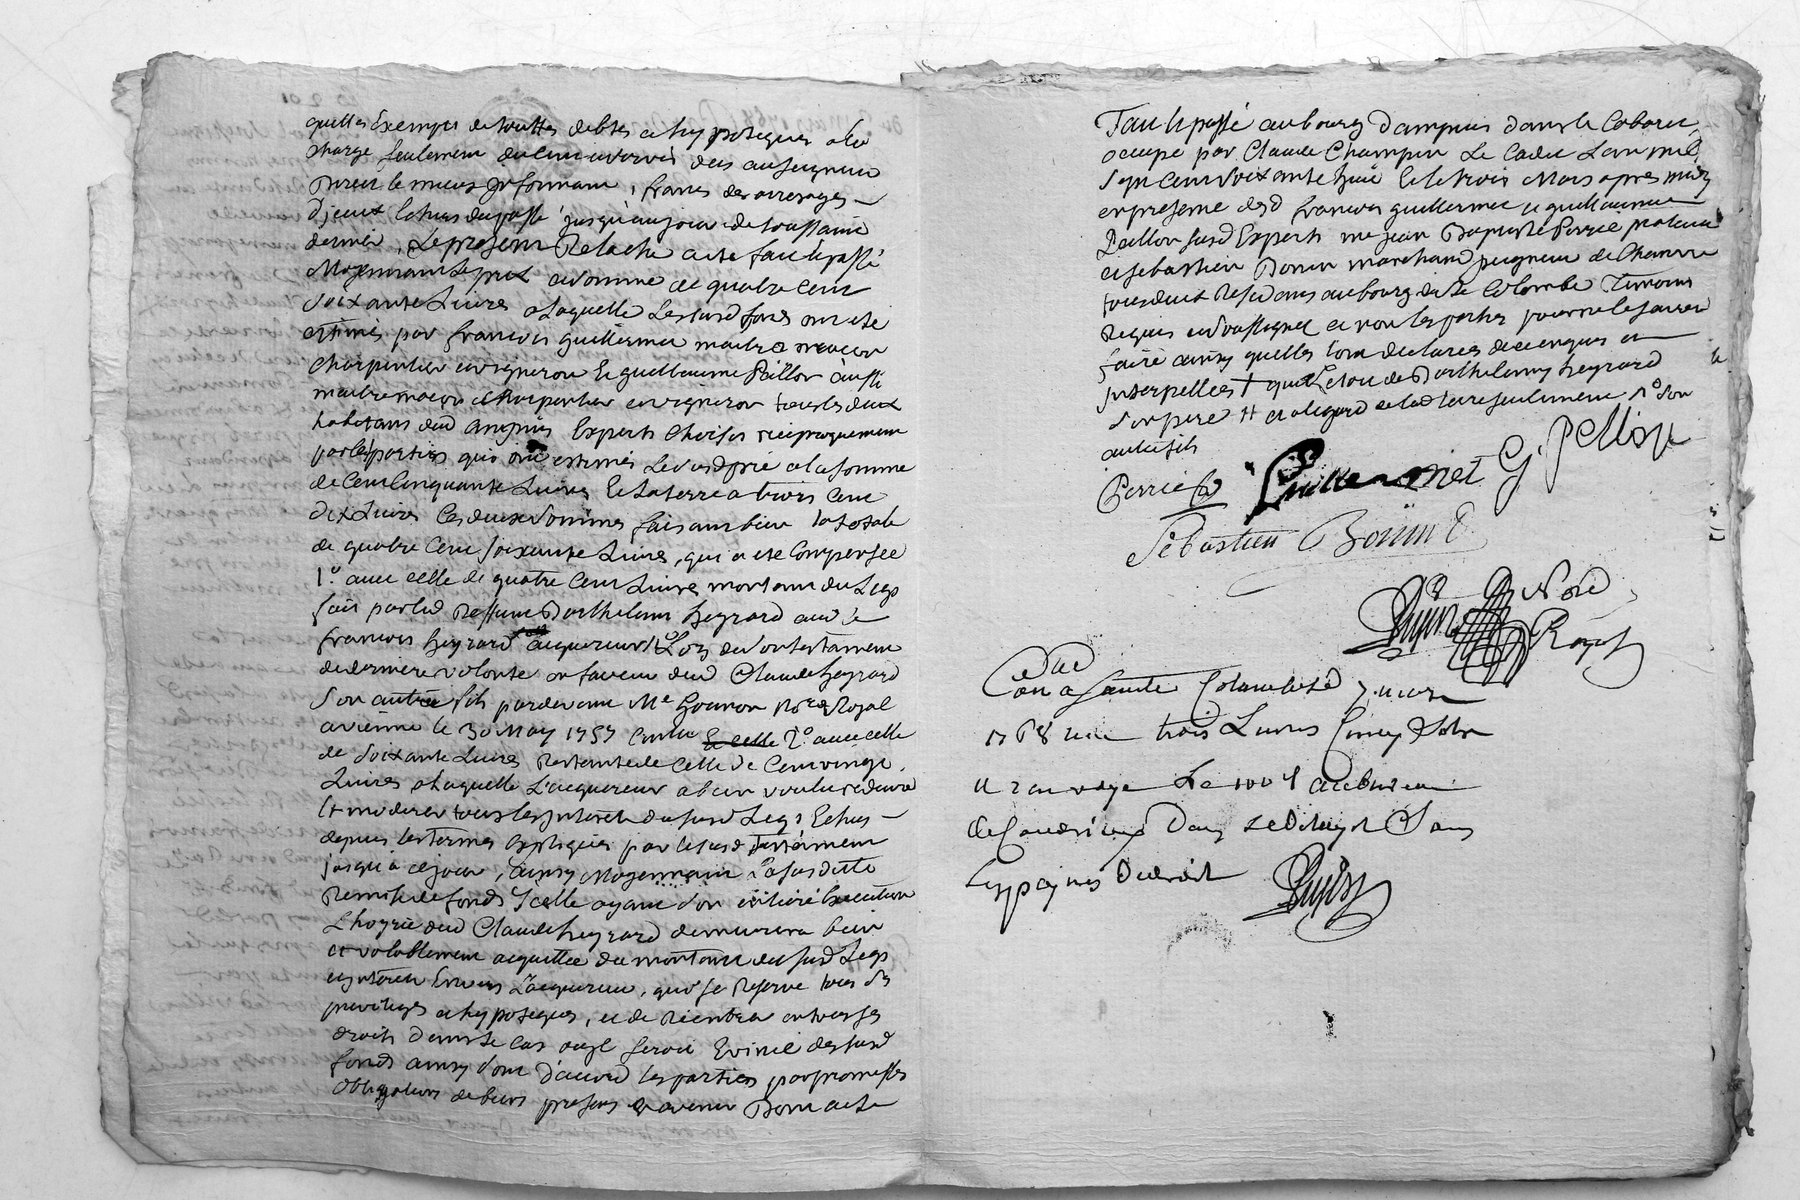 quittes Exempts de touttes debtes et hypoteques a la
charge seulement du cens a servis deus au seigneur
Direct le mieux Informant, francs des arrerages
d'jceux Echus du passé jusqu'au jour de toussaint
dernier, Le present Relache a ete fait et passé
Moyennant le prix et somme de quatre cent
soixante Livres a Laquelle Les susd fonds ont ete
estimés par francois guillermet maitre maçon
Charpentier et vigneron Et guillaume Paillon aussi
maitre maçon et Charpentier et vigneron tous les deux
habitans dud Ampuis Experts Choisis réciproquement
par les parties qui ont estimés Le susd pré a la somme
de Cent Cinquante Livres Et La terre a trois Cent
Dix Livres Les deux sommes faisant bien la totale
de quatre Cent soixante Livres, qui a ete Compensée
1.° avec celle de quatre Cent Livres montant du Legs
fait par led deffunt Barthelemy heyrard aud
francois heyrard acquereur Lors de son testament
de derniere volonté en faveur dud Claude heyrard
son autre fils pardevant Me Gouron Nore Royal
a vienne le 30 May 1757 Et celle 2.° avec celle
de soixante Livres Restante de Celle de Cent vingt
Livres a laquelle L'acquereur a bien voulu reduire
Et moderer tous les Interets du susd Legs Echus
depuis les termes Expliqués par le susd testament
jusqu'a ce jour, ainsy Moyennant La susditte
Remise de fonds Icelle ayant son entiere Execution
L'hoyrie dud Claude heyrard demeurera bien
et valablement acquittée du montant du susd Legs
et jnterets Envers L'acquereur, qui se Reserve tous ses
privileges et hypoteques, et de Rentrer en tous ses
droits dans le cas ou jl seroit Evincé des susd
fonds ainsy sont d'accord les parties par promesses
Obligations de biens presens et avenir Dont acte
fait et passé au bourg d'ampuis dans le Cabaret
occupé par Claude Champin Le Cadet L'an mil
sept cent soixante huit Et le trois Mars apres midy
en presence desd francois guillermet et guillaume
Paillon susd Experts me jean Baptiste Perrie praticien
et sebastien Bonin marchand peigneur de Chanvre
tous deux Residans au bourg de Ste Colombe Temoins
Requis et soussignés et non les parties pour ne le savoir
faire ainsy quelles l'ont declarés de ce enquis et
jnterpellées
son pere et a l'egard de la terre seulement son
autre fils
Perrie Guillermet G. Pellion
Sebastien Bonin
Nore
Royal
Conlé a Sainte Colombe le 7. mars
1768 reçu trois Livres Cinq sols
de Condrieux Dans le Delay et Sans